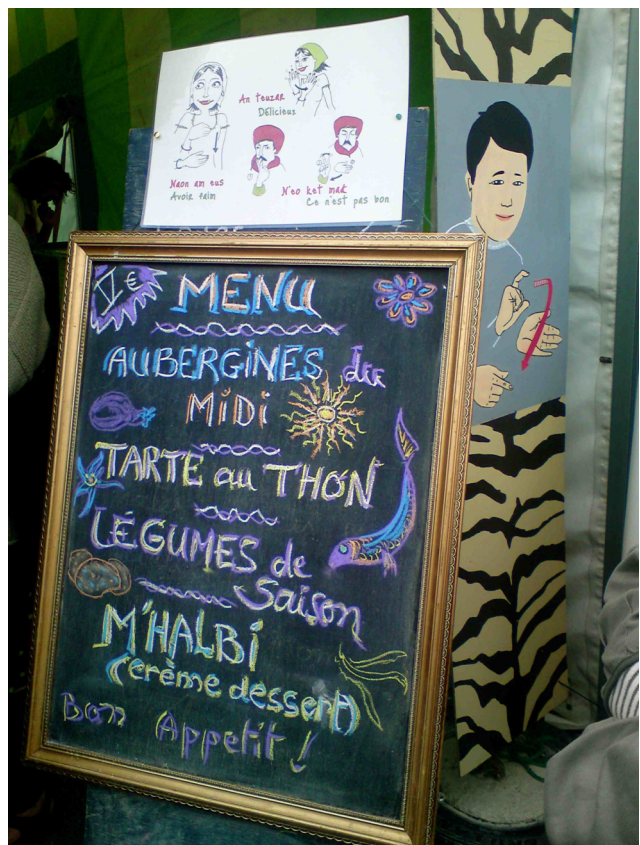 An teuzar
Délicieux
Naon am eus
Avoir faim
N'eo ket mad
Ce n'est pas bon
V €
MENU
AUBERGINES du
MiDi
TARTE au THON
LÉGUMES de
Saison
M'HALBI
(crème dessert)
Bon Appetit !